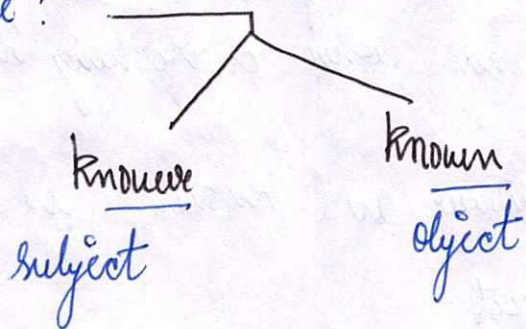 knower known
subject object